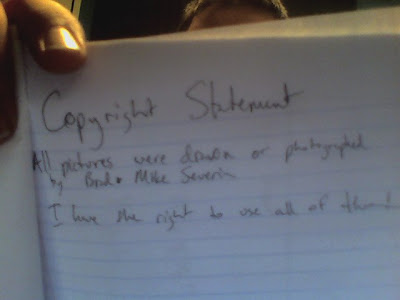 Copyright Statement
All pictures were drawn or photographed
by Brad & Mike Severin
I have the right to use all of them!